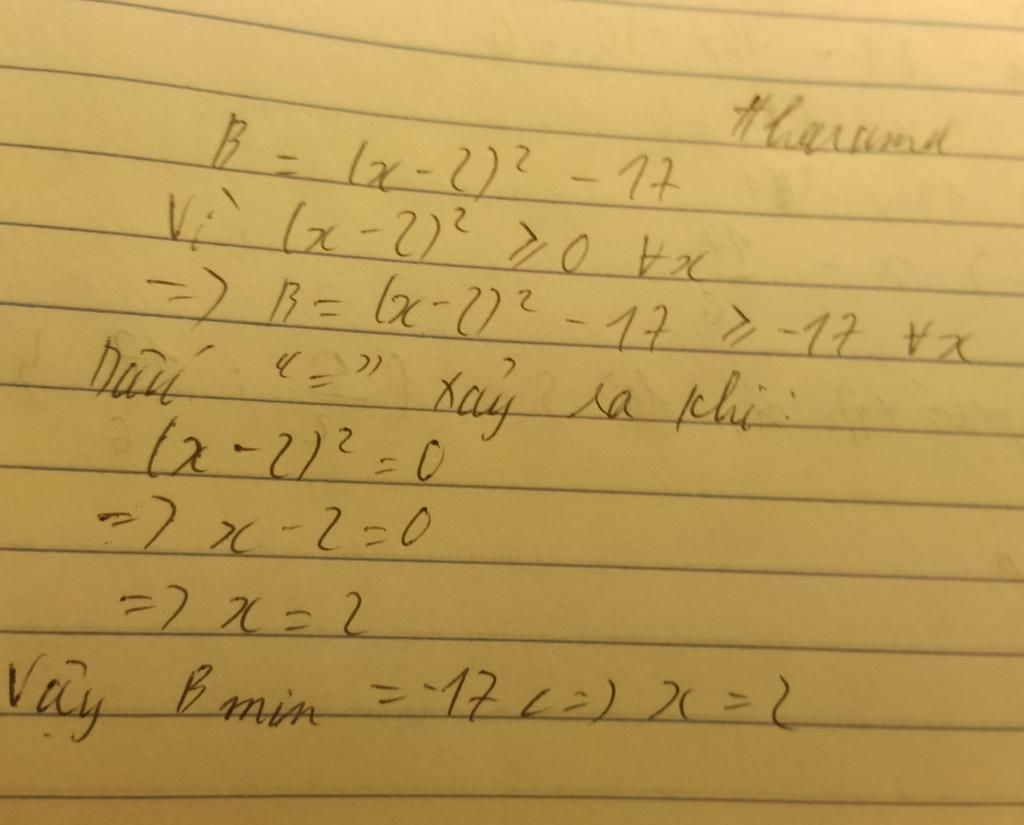 #harumd
B = (x - 2)² - 17
Vì (x - 2)² ⩾ 0 ∀x
=> B = (x - 2)² - 17 ⩾ -17 ∀x
Dấu "=" xảy ra khi:
(x - 2)² = 0
=> x - 2 = 0
=> x = 2
Vậy B min = -17 <=> x = 2